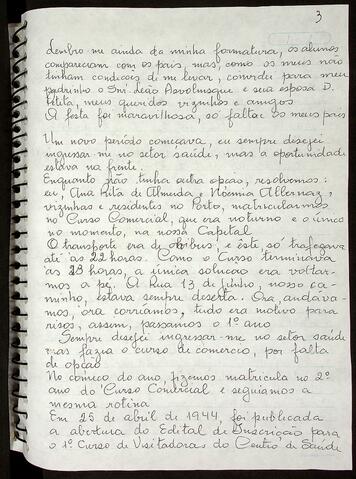 3
dentro me ainda da minha formatura, os alunos
compareciam com os pais, mas como os meus não
tinham condições de me levar, convidei para meu
padrinho o Snr. João Assolmoque e sua esposa D.
Petita, meus queridos vizinhos e amigos
A festa foi maravilhosa, só faltou os meus pais
Um novo período começava, eu sempre desejei
ingressar-me no setor saúde, mas a oportunidade
estava na frente.
Enquanto não tinha outra opção, resolvemos:
eu, Ana Rita de Almeida, Noêmia Albernaz,
vizinhas e residentes no Porto, matricularmos
no Curso Comercial, que era noturno e o único
no momento, na nossa Capital
O transporte era de ônibus, e este, só trafegava
até às 22 horas. Como o Curso terminava
às 23 horas, a única solução era voltar-
mos a pé. A Rua 13 de Junho, nosso ca-
minho, estava sempre deserta. Ora, andáva-
mos, ora corríamos, tudo era motivo para
risos, assim, passamos o 1º ano
Sempre desejei ingressar-me no setor saúde
mas fazia o curso de comércio, por falta
de opção
No começo do ano, fizemos matrícula no 2º
ano do Curso Comercial e seguíamos a
mesma rotina
Em 25 de abril de 1944, foi publicada
a abertura do Edital de Inscrição para
o 1º Curso de Visitadoras do Centro de Saúde